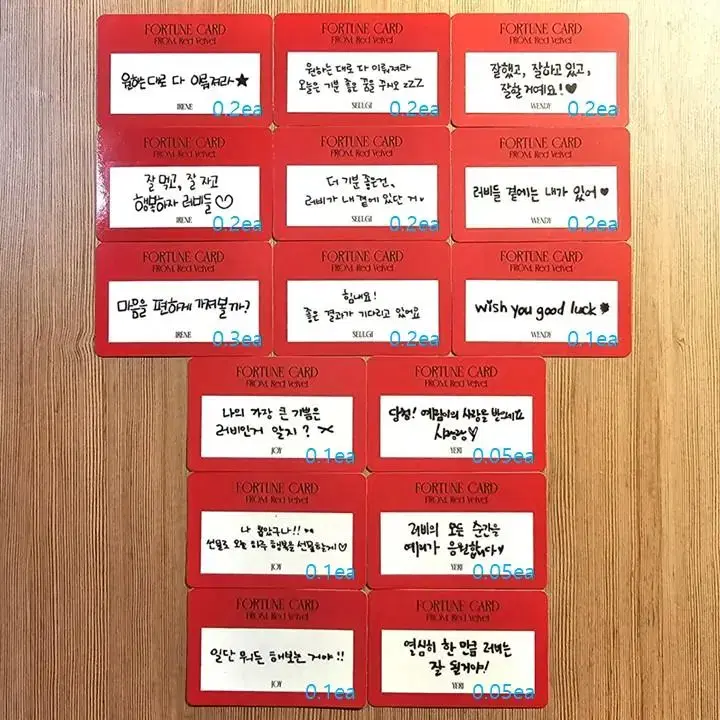 FORTUNE CARD
FROM. Red Velvet
원하는 대로 다 이뤄져라★
IRENE
0.2ea
FORTUNE CARD
FROM. Red Velvet
원하는 대로 다 이뤄져라
오늘은 기분 좋은 꿈을 꾸시오 zZZ
SEULGI
0.2ea
FORTUNE CARD
FROM. Red Velvet
잘했고, 잘하고 있고,
잘할 거예요!♥
WENDY
0.2ea
FORTUNE CARD
FROM. Red Velvet
잘 먹고, 잘 자고
행복하자 러비들♡
IRENE
0.2ea
FORTUNE CARD
FROM. Red Velvet
더 기분 좋은건,
러비가 내 곁에 있단 거♥
SEULGI
0.2ea
FORTUNE CARD
FROM. Red Velvet
러비들 곁에는 내가 있어♥
WENDY
0.2ea
FORTUNE CARD
FROM. Red Velvet
마음을 편하게 가져볼까?
IRENE
0.3ea
FORTUNE CARD
FROM. Red Velvet
힘내요!
좋은 결과가 기다리고 있어요
SEULGI
0.2ea
FORTUNE CARD
FROM. Red Velvet
wish you good luck
WENDY
0.1ea
FORTUNE CARD
FROM. Red Velvet
나의 가장 큰 기쁨은
러비인거 알지?
JOY
0.1ea
FORTUNE CARD
FROM. Red Velvet
당첨! 예림이의 사랑을 받으세요
사랑랑♡
YERI
0.05ea
FORTUNE CARD
FROM. Red Velvet
나 뽑았구나!!
선물로 오늘 하루 행복을 선물할게♡
JOY
0.1ea
FORTUNE CARD
FROM. Red Velvet
러비의 모든 순간을
예리가 응원합니다♥
YERI
0.05ea
FORTUNE CARD
FROM. Red Velvet
일단 뭐든 해보는 거야!!
JOY
0.1ea
FORTUNE CARD
FROM. Red Velvet
열심히 한 만큼 러비는
잘 될거야!
YERI
0.05ea